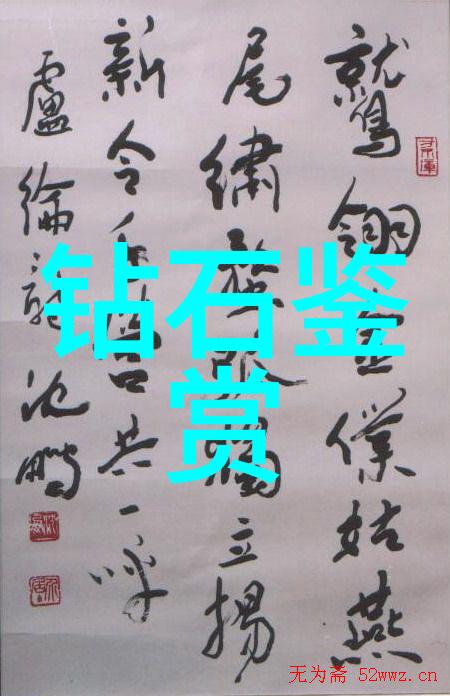 鷲翎金僕姑燕
尾繡蝥弧獨立揚
新令千營共一呼
盧綸詩 沈鵬
钻石鉴
赏
无为斋 52wwz.cn